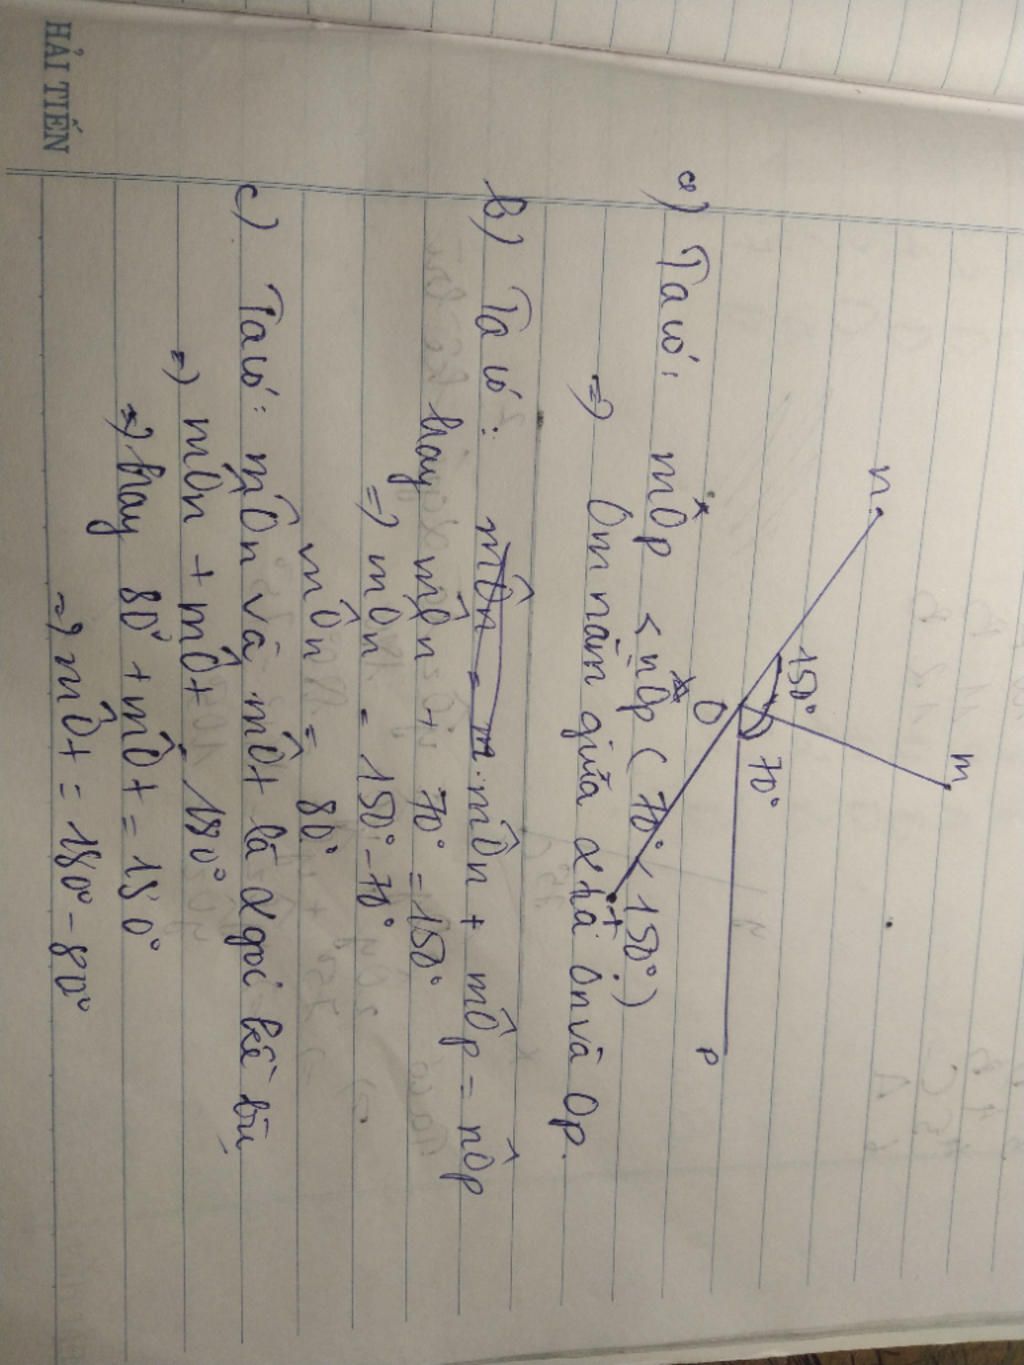 HẢI TIẾN
n
m
150°
70°
O
p
t
a) Ta có: mÔp < nÔp (70° < 150°)
=> Om nằm giữa 2 tia On và Op.
b) Ta có: mÔn + mÔp = nÔp
hay mÔn + 70° = 150°
=> mÔn = 150° - 70°
mÔn = 80°
c) Ta có: mÔn và mÔt là 2 góc kề bù
=> mÔn + mÔt = 180°
=> hay 80° + mÔt = 180°
=> mÔt = 180° - 80°